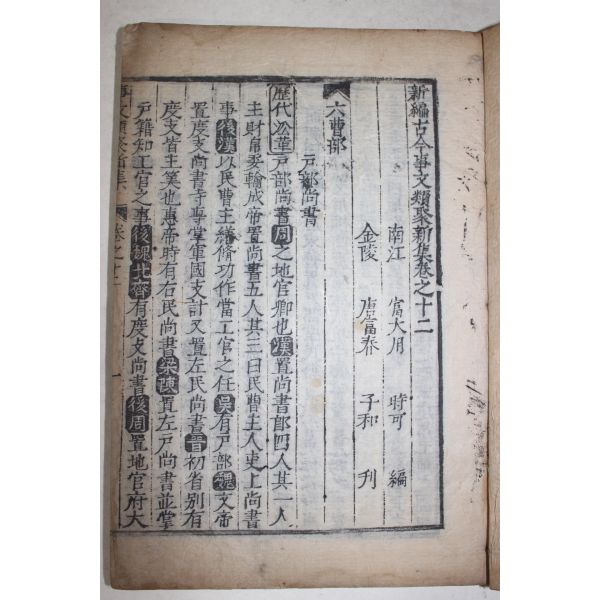 新編古今事文類聚新集卷之十二
南江 富大用 時可 編
金陵 唐富春 子和 刊
六曹部
戶部尚書
歷代沿革 戶部尚書周之地官卿也漢置尚書郎四人其一人
主財帛委輸成帝置尚書五人其三曰民曹主人吏上尚書
事後漢以民曹主繕脩功作當工官之任吳有戶部魏文帝
置度支尚書寺專掌軍國支計又置左民尚書晉初省別有
度支皆主筭也惠帝時有右民尚書梁陳置左戶尚書並掌
戶籍知工官之事後魏北齊有度支尚書後周置地官府大
事文類聚新集 卷之十二 一